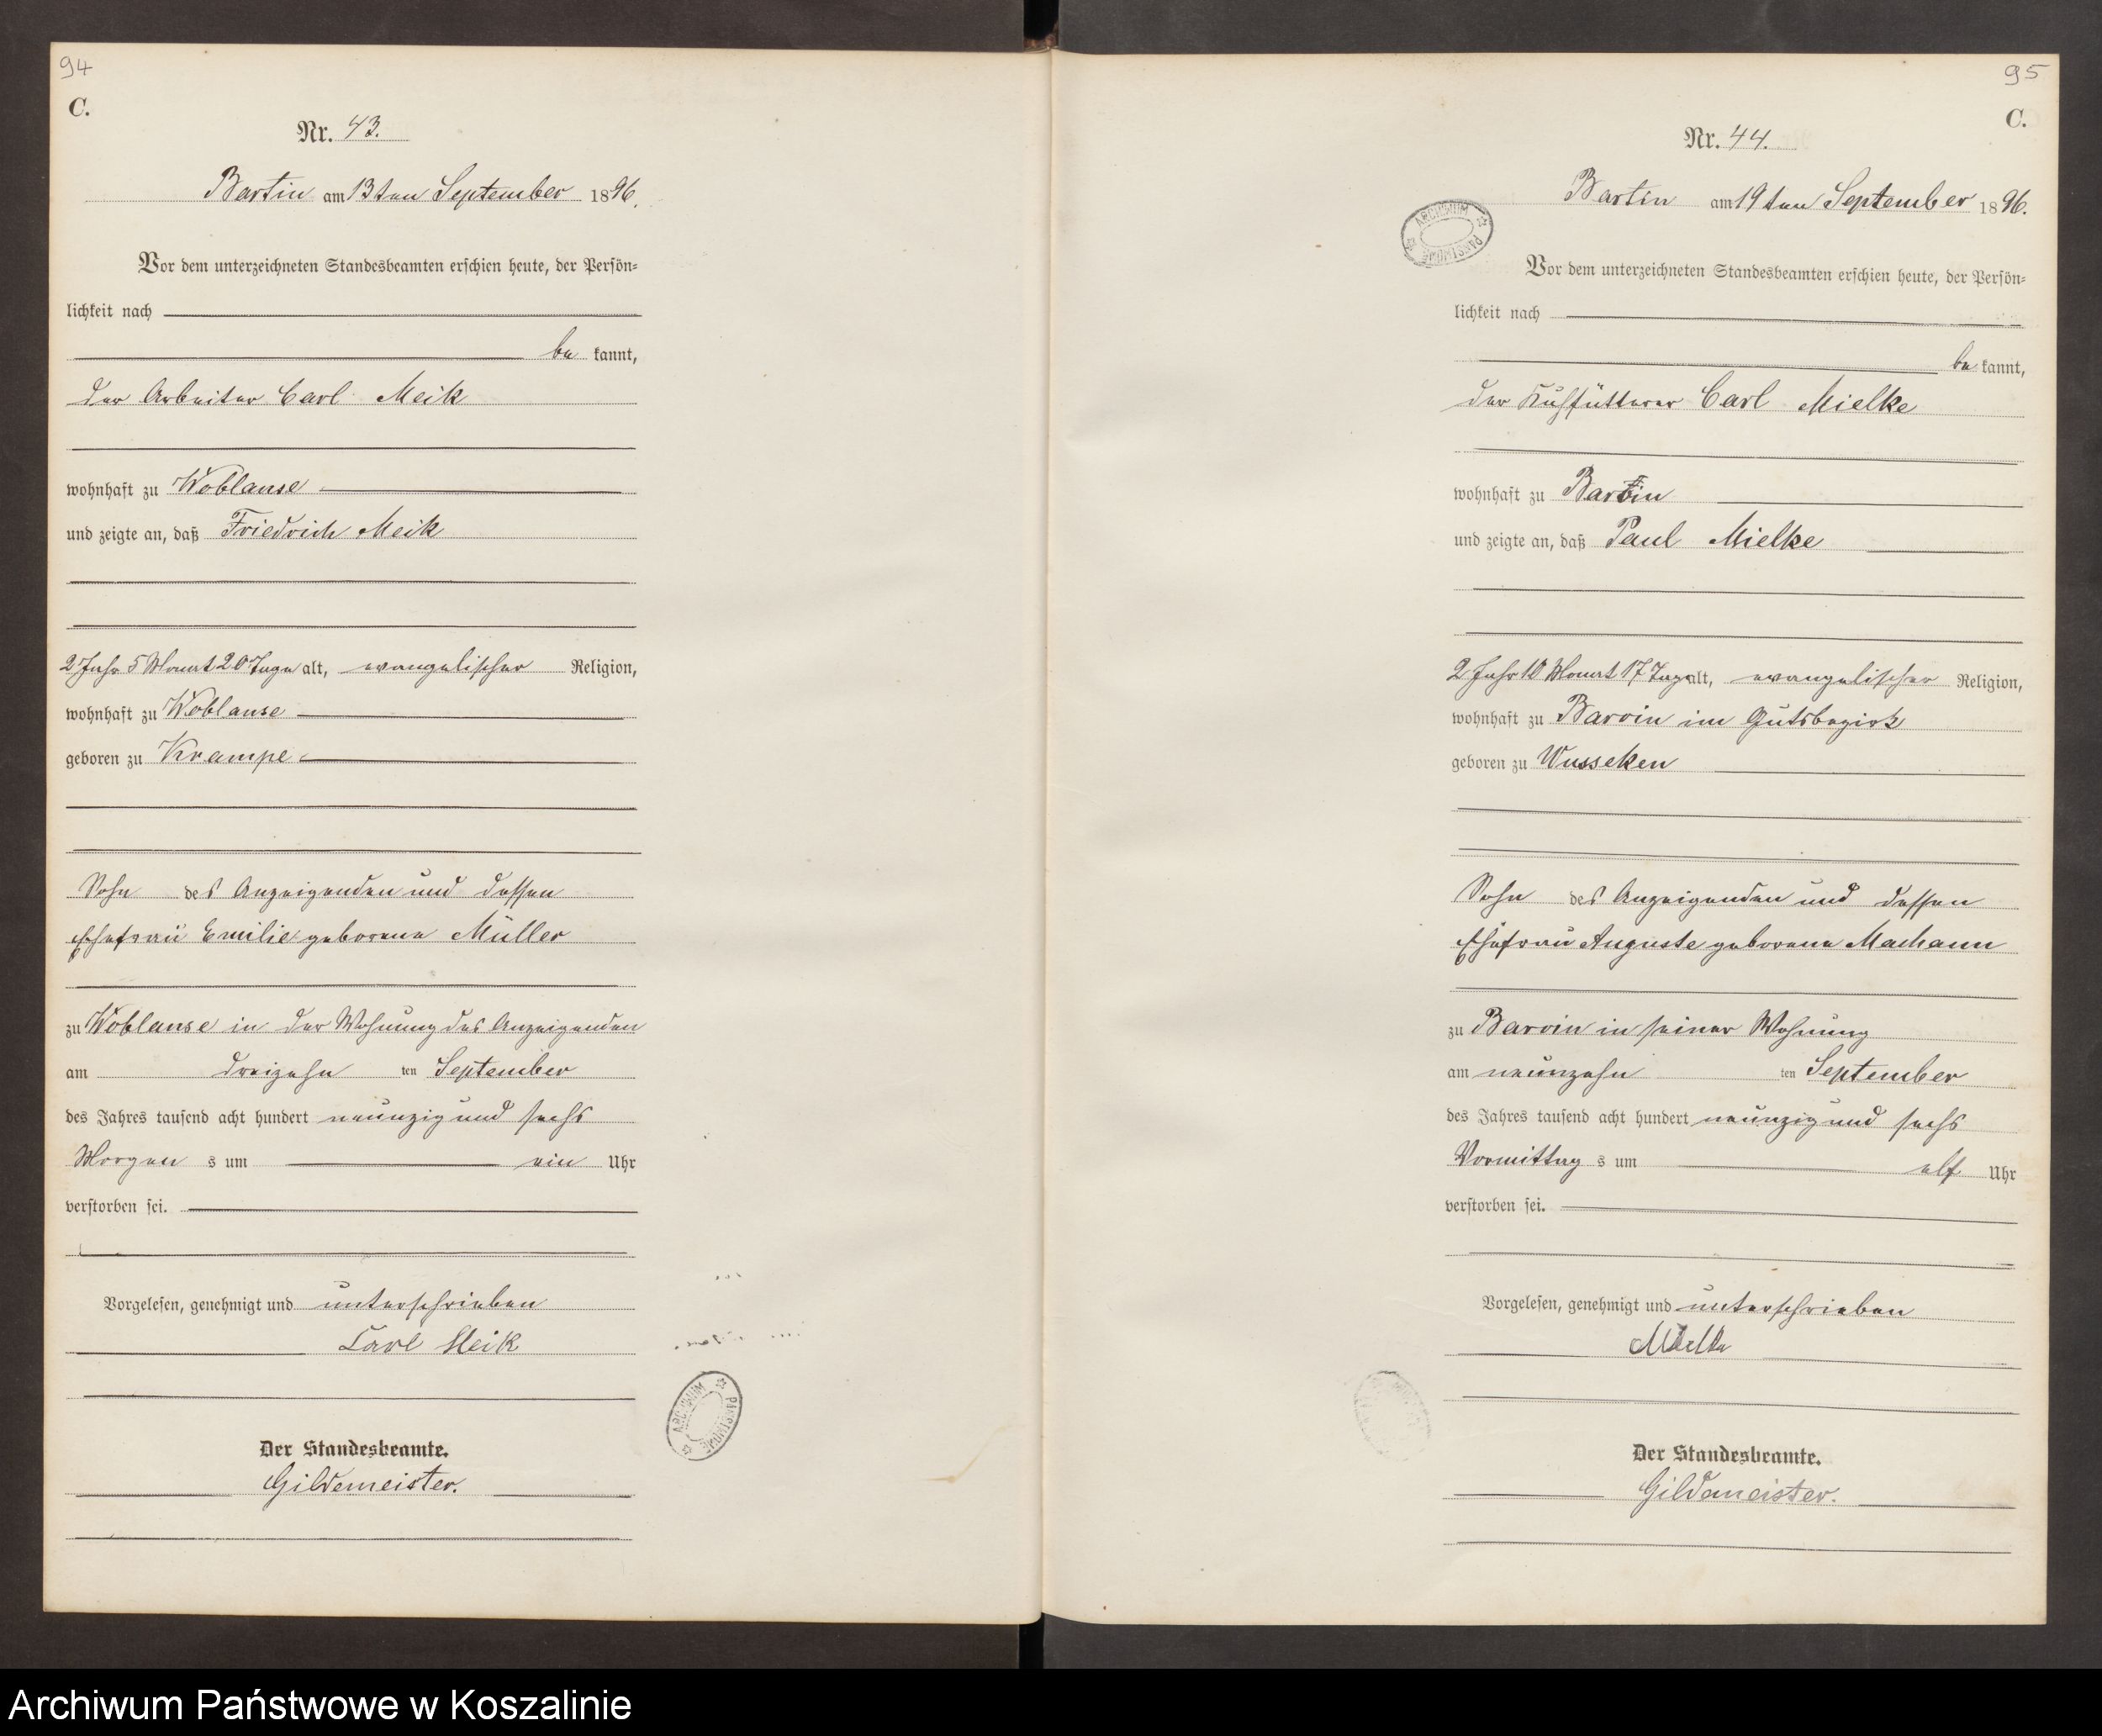 94
C.
Nr. 43.
Bartin am 13ten September 1896.
Vor dem unterzeichneten Standesbeamten erschien heute, der Persön-
lichkeit nach
be kannt,
der Arbeiter Carl Meik
wohnhaft zu Woblanse
und zeigte an, daß Friedrich Meik
2 Jahr 5 Monat 20 Tage alt, evangelischer Religion,
wohnhaft zu Woblanse
geboren zu Krampe
Sohn des Anzeigenden und dessen
Ehefrau Emilie geborene Müller
zu Woblanse in der Wohnung des Anzeigenden
am dreizehn ten September
des Jahres tausend acht hundert neunzig und sechs
Morgen s um ein Uhr
verstorben sei.
Vorgelesen, genehmigt und unterschrieben
Carl Meik
Der Standesbeamte.
Gildemeister.
ARCHIWUM PAŃSTWOWE
95
C.
Nr. 44.
Bartin am 19ten September 1896.
ARCHIWUM PAŃSTWOWE
Vor dem unterzeichneten Standesbeamten erschien heute, der Persön-
lichkeit nach
be kannt,
der Kuhfütterer Carl Mielke
wohnhaft zu Bartin
und zeigte an, daß Paul Mielke
2 Jahr 10 Monat 17 Tage alt, evangelischer Religion,
wohnhaft zu Barvin im Gutsbezirk
geboren zu Wusseken
Sohn des Anzeigenden und dessen
Ehefrau Auguste geborene Machann
zu Barvin in seiner Wohnung
am neunzehn ten September
des Jahres tausend acht hundert neunzig und sechs
Vormittag s um elf Uhr
verstorben sei.
Vorgelesen, genehmigt und unterschrieben
Mielke
Der Standesbeamte.
Gildemeister.
Archiwum Państwowe w Koszalinie